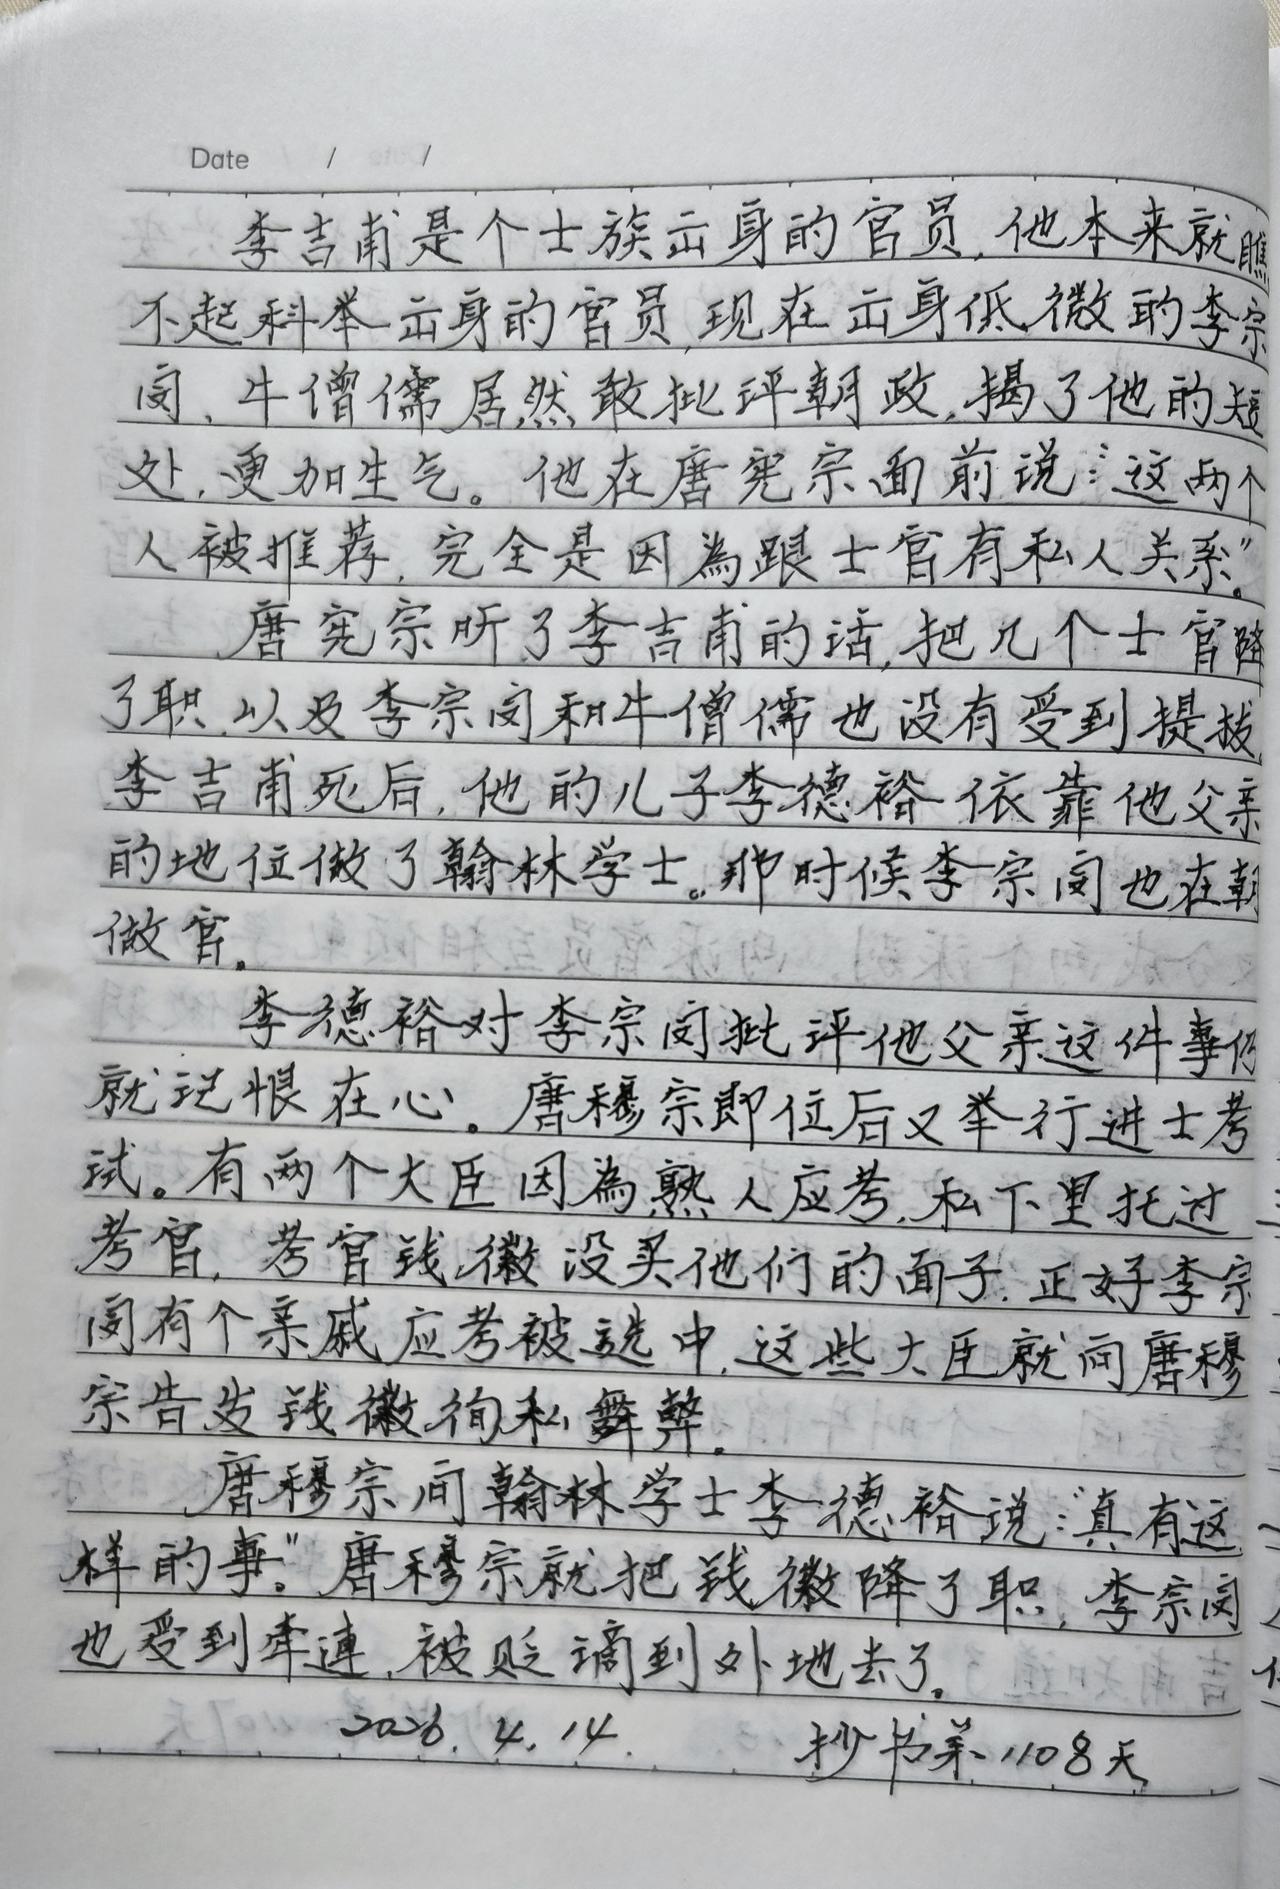 Date / /
李吉甫是个士族出身的官员,他本来就瞧
不起科举出身的官员,现在出身低微的李宗
闵、牛僧儒居然敢批评朝政,揭了他的短
处,更加生气。他在唐宪宗面前说:“这两个
人被推荐,完全是因為跟士官有私人关系”。
唐宪宗听了李吉甫的话,把几个士官降
了职,以及李宗闵和牛僧儒也没有受到提拔,
李吉甫死后,他的儿子李德裕依靠他父亲
的地位做了翰林学士。那时候李宗闵也在朝
做官。
李德裕对李宗闵批评他父亲这件事仍
就记恨在心。唐穆宗即位后又举行进士考
试。有两个大臣因為熟人应考,私下里托过
考官,考官钱徽没买他们的面子.正好李宗
闵有个亲戚应考被选中,这些大臣就向唐穆
宗告发钱徽徇私舞弊。
唐穆宗问翰林学士李德裕说:“真有这
样的事”。唐穆宗就把钱徽降了职,李宗闵
也受到牵連,被贬谪到外地去了。
2026.4.14. 抄书第1108天